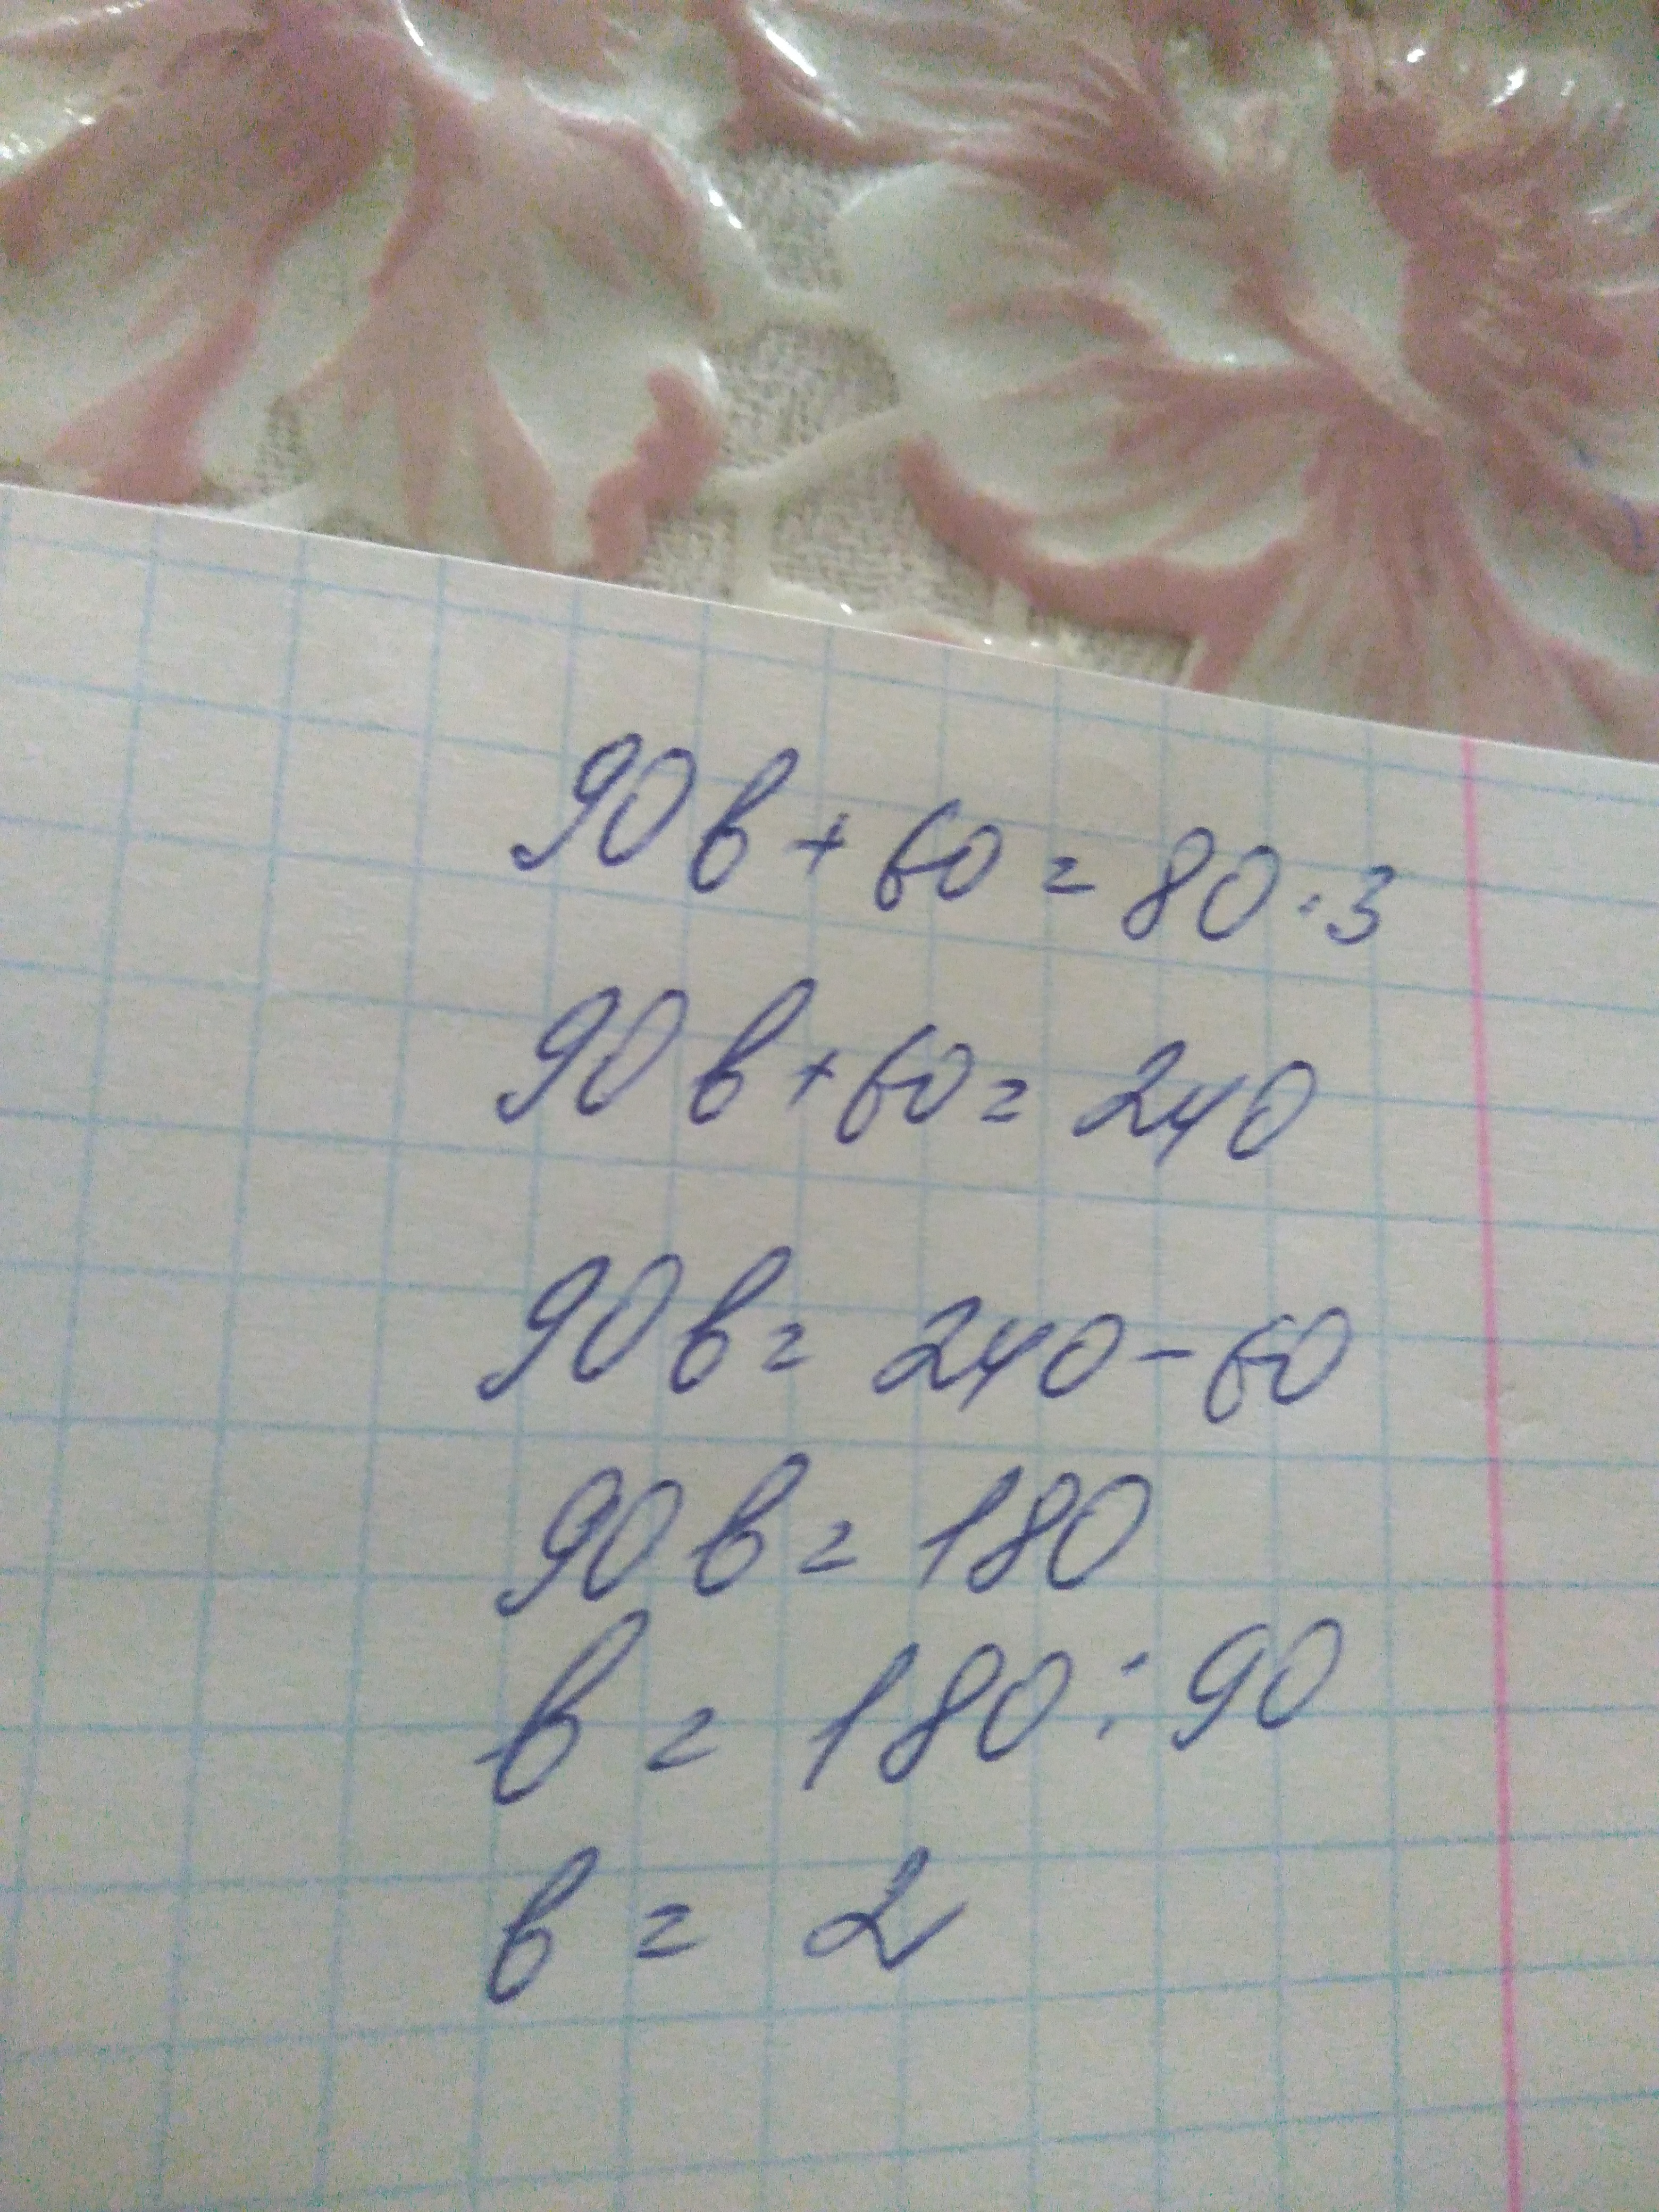 90b + 60 = 80 · 3
90b + 60 = 240
90b = 240 - 60
90b = 180
b = 180 : 90
b = 2